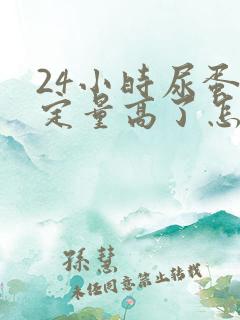 24小时尿蛋
定量高了怎
孫慧
未经同意禁止转载